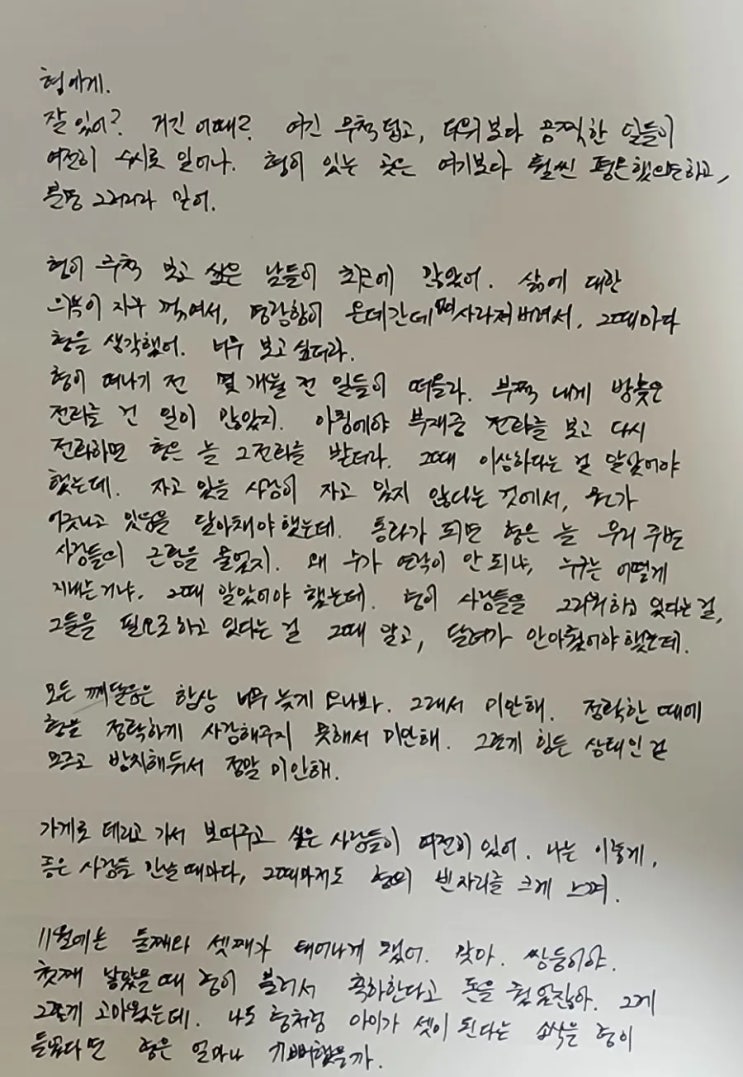 형에게.
잘 있어? 거긴 어때? 여긴 무척 덥고, 더위보다 끔찍한 일들이
여전히 수시로 일어나. 형이 있는 곳은 여기보다 훨씬 평온했으면하고,
분명 그러리라 믿어.
형이 무척 보고 싶은 날들이 최근에 많았어. 삶에 대한
의욕이 자꾸 꺾여서, 명랑함이 온데간데 사라져버려서, 그때마다
형을 생각했어. 너무 보고 싶더라.
형이 떠나기 전 몇 개월 전 일들이 떠올라. 부쩍 내게 밤늦은
전화를 건 일이 많았지. 아침에야 부재중 전화를 보고 다시
전화하면 형은 늘 그 전화를 받더라. 그때 이상하다는 걸 알았어야
했는데. 자고 있을 사람이 자고 있지 않다는 것에서, 뭔가
어긋나고 있음을 알아챘어야 했는데. 통화가 되면 형은 늘 우리 주변
사람들의 근황을 물었지. 왜 누가 연락이 안 되냐, 누구는 어떻게
지내는거냐. 그때 알았어야 했는데. 형이 사람들을 그리워하고 있다는 걸,
그들을 필요로 하고 있다는 걸 그때 알고, 달려가 안아줬어야 했는데.
모든 깨달음은 항상 너무 늦게 오나봐. 그래서 미안해. 정확한 때에
형을 정확하게 사랑해주지 못해서 미안해. 그렇게 힘든 상태인 걸
모르고 방치해둬서 정말 미안해.
가게로 데리고 가서 보여주고 싶은 사람들이 여전히 있어. 나는 이렇게,
좋은 사람들 만날 때마다, 그때마저도 형의 빈자리를 크게 느껴.
11월에는 둘째와 셋째가 태어나게 됐어. 맞아. 쌍둥이야.
첫째 낳았을 때 형이 불러서 축하한다고 돈을 줬었잖아. 그게
그렇게 고마웠는데. 나도 형처럼 아이가 셋이 된다는 소식을 형이
들었다면 형은 얼마나 기뻐했을까.